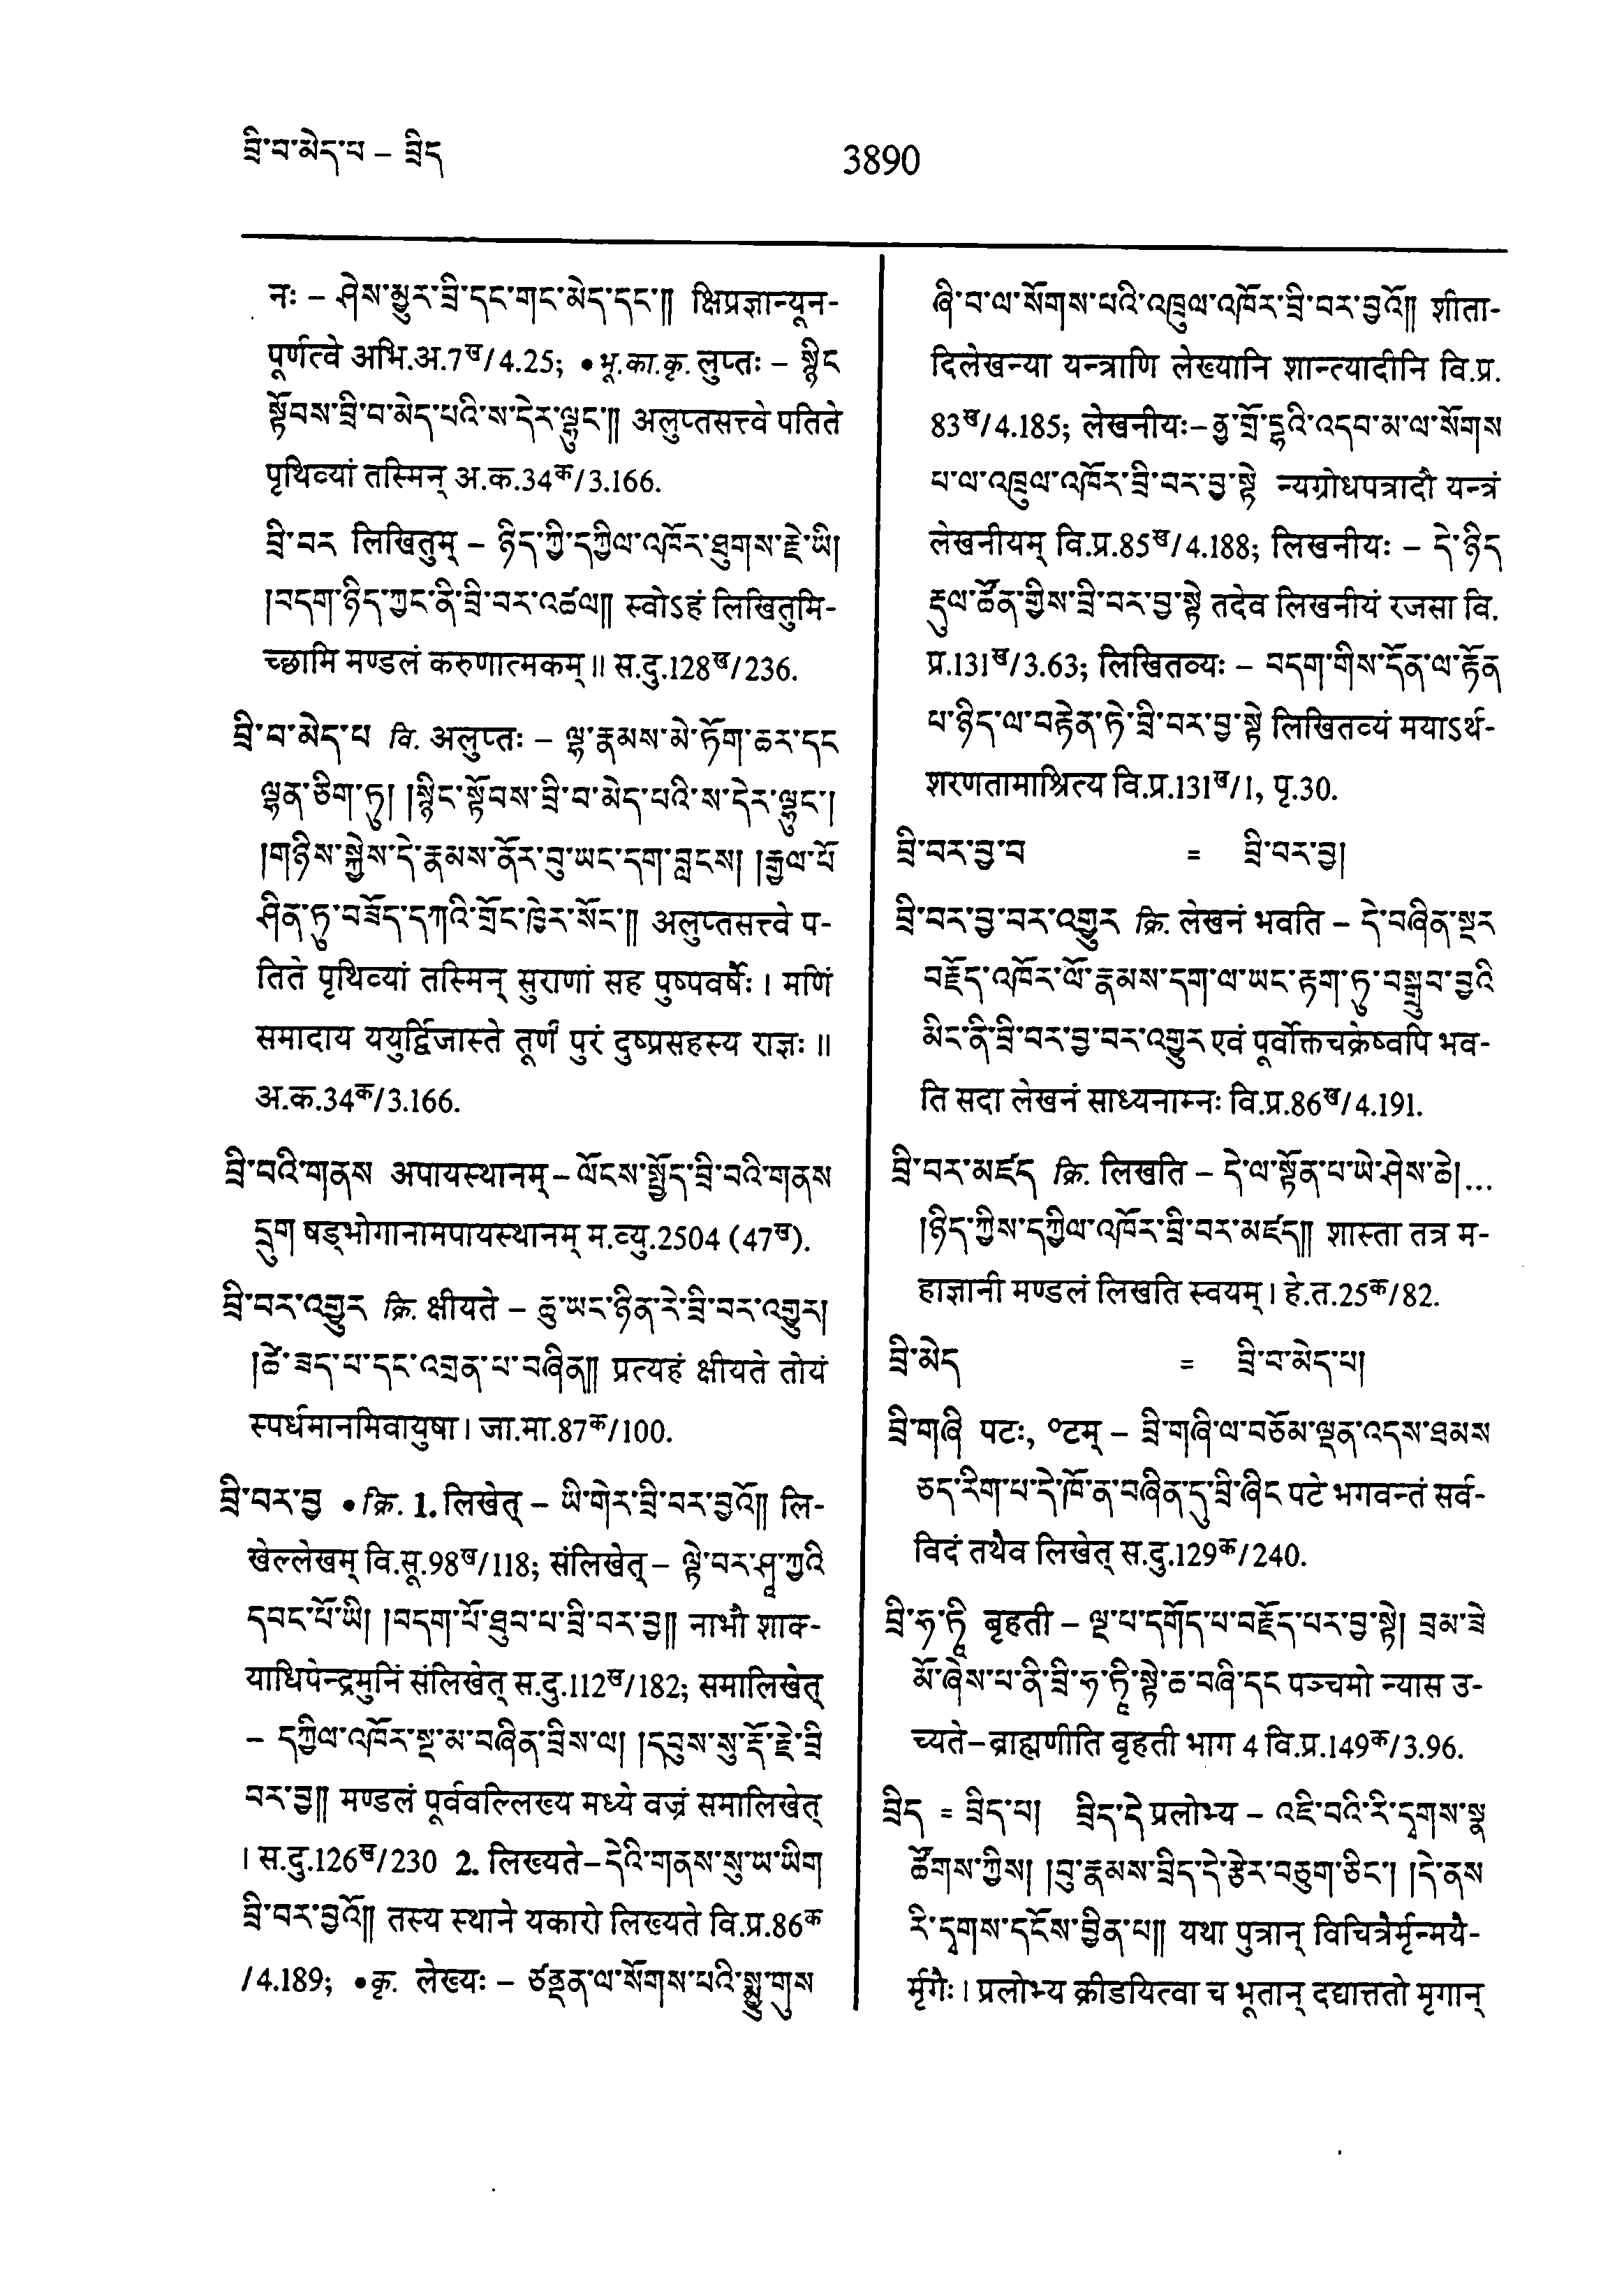 བྲི་བ་མེད་པ – བྲིད
3890
नः – ཤེས་མྱུར་བྲི་དང་གང་མེད་དང་༎ क्षिप्रज्ञान्यून-
पूर्णत्वे अभि.अ.7ख/4.25; • भू.का.कृ. लुप्तः – སྙིང
སྟོབས་བྲི་བ་མེད་པའི་ས་དེར་ལྷུང་༎ अलुप्तसत्त्वे पतिते
पृथिव्यां तस्मिन् अ.क.34क/3.166.
བྲི་བར लिखितुम् – ཉིད་ཀྱི་དཀྱིལ་འཁོར་ཐུགས་རྗེ་ཡི།
།བདག་ཉིད་ཀྱང་ནི་བྲི་བར་འཚལ༎ स्वोऽहं लिखितुमि-
च्छामि मण्डलं करुणात्मकम्॥ स.दु.128ख/236.
བྲི་བ་མེད་པ वि. अलुप्तः – ལྷ་རྣམས་མེ་ཏོག་ཆར་དང
ལྷན་ཅིག་ཏུ། །སྙིང་སྟོབས་བྲི་བ་མེད་པའི་ས་དེར་ལྷུང་།
།གཉིས་སྐྱེས་དེ་རྣམས་ནོར་བུ་ཡང་དག་བླངས། །རྒྱལ་པོ
ཤིན་ཏུ་བཟོད་དཀའི་གྲོང་ཁྱེར་སོང་༎ अलुप्तसत्त्वे प-
तिते पृथिव्यां तस्मिन् सुराणां सह पुष्पवर्षैः। मणिं
समादाय ययुर्द्विजास्ते तूर्णं पुरं दुष्प्रसहस्य राज्ञः॥
अ.क.34क/3.166.
བྲི་བའི་གནས अपायस्थानम् – ལོངས་སྤྱོད་བྲི་བའི་གནས
དྲུག षड्भोगानामपायस्थानम् म.व्यु.2504 (47ख).
བྲི་བར་འགྱུར क्रि. क्षीयते – ཆུ་ཡང་ཉིན་རེ་བྲི་བར་འགྱུར།
།ཚེ་ཟད་པ་དང་འགྲན་པ་བཞིན༎ प्रत्यहं क्षीयते तोयं
स्पर्धमानमिवायुषा। जा.मा.87क/100.
བྲི་བར་བྱ • क्रि. 1. लिखेत् – ཡི་གེར་བྲི་བར་བྱའོ༎ लि-
खेल्लेखम् वि.सू.98ख/118; संलिखेत् – ལྟེ་བར་ཤཱ་ཀྱའི
དབང་པོ་ཡི། །བདག་པོ་ཐུབ་པ་བྲི་བར་བྱ༎ नाभौ शाक-
याधिपेन्द्रमुनिं संलिखेत् स.दु.112ख/182; समालिखेत्
– དཀྱིལ་འཁོར་སྔ་མ་བཞིན་བྲིས་ལ། །དབུས་སུ་རྡོ་རྗེ་བྲི
བར་བྱ༎ मण्डलं पूर्ववल्लिख्य मध्ये वज्रं समालिखेत्
। स.दु.126ख/230 2. लिख्यते – དེའི་གནས་སུ་ཡ་ཡིག
བྲི་བར་བྱའོ༎ तस्य स्थाने यकारो लिख्यते वि.प्र.86क
/4.189; • कृ. लेख्यः – ཙནྡན་ལ་སོགས་པའི་སྨྱུ་གུས
ཞི་བ་ལ་སོགས་པའི་འཁྲུལ་འཁོར་བྲི་བར་བྱའོ༎ शीता-
दिलेखन्या यन्त्राणि लेख्यानि शान्त्यादीनि वि.प्र.
83ख/4.185; लेखनीयः – ནྱ་གྲོ་དྷའི་འདབ་མ་ལ་སོགས
པ་ལ་འཁྲུལ་འཁོར་བྲི་བར་བྱ་སྟེ न्यग्रोधपत्रादौ यन्त्रं
लेखनीयम् वि.प्र.85ख/4.188; लिखनीयः – དེ་ཉིད
རྡུལ་ཚོན་གྱིས་བྲི་བར་བྱ་སྟེ तदेव लिखनीयं रजसा वि.
प्र.131ख/3.63; लिखितव्यः – བདག་གིས་དོན་ལ་རྟོན
པ་ཉིད་ལ་བརྟེན་ཏེ་བྲི་བར་བྱ་སྟེ लिखितव्यं मयाऽर्थ-
शरणतामाश्रित्य वि.प्र.131ख/1, पृ.30.
བྲི་བར་བྱ་བ = བྲི་བར་བྱ།
བྲི་བར་བྱ་བར་འགྱུར क्रि. लेखनं भवति – དེ་བཞིན་སྔར
བརྗོད་འཁོར་ལོ་རྣམས་དག་ལ་ཡང་རྟག་ཏུ་བསྒྲུབ་བྱའི
མིང་ནི་བྲི་བར་བྱ་བར་འགྱུར एवं पूर्वोक्तचक्रेष्वपि भव-
ति सदा लेखनं साध्यनाम्नः वि.प्र.86ख/4.191.
བྲི་བར་མཛད क्रि. लिखति – དེ་ལ་སྟོན་པ་ཡེ་ཤེས་ཆེ།...
།ཉིད་ཀྱིས་དཀྱིལ་འཁོར་བྲི་བར་མཛད༎ शास्ता तत्र म-
हाज्ञानी मण्डलं लिखति स्वयम्। हे.त.25क/82.
བྲི་མེད = བྲི་བ་མེད་པ།
བྲི་གཞི पटः, ०टम् – བྲི་གཞི་ལ་བཅོམ་ལྡན་འདས་ཐམས
ཅད་རིག་པ་དེ་ཁོ་ན་བཞིན་དུ་བྲི་ཞིང पटे भगवन्तं सर्व-
विदं तथैव लिखेत् स.दु.129क/240.
བྲི་ཧ་ཏཱི बृहती – ལྔ་པ་དགོད་པ་བརྗོད་པར་བྱ་སྟེ། བྲམ་ཟེ
མོ་ཞེས་པ་ནི་བྲི་ཧ་ཏཱི་སྟེ་ཆ་བཞི་དང पञ्चमो न्यास उ-
च्यते – ब्राह्मणीति बृहती भाग 4 वि.प्र.149क/3.96.
བྲིད = བྲིད་པ། བྲིད་དེ प्रलोभ्य – འཇི་བའི་རི་དྭགས་སྣ
ཚོགས་ཀྱིས། །བུ་རྣམས་བྲིད་དེ་རྩེར་བཅུག་ཅིང་། །དེ་ནས
རི་དྭགས་དངོས་བྱིན་པ༎ यथा पुत्रान् विचित्रैर्मृन्मयै-
र्मृगैः। प्रलोभ्य क्रीडयित्वा च भूतान् दद्यात्ततो मृगान्